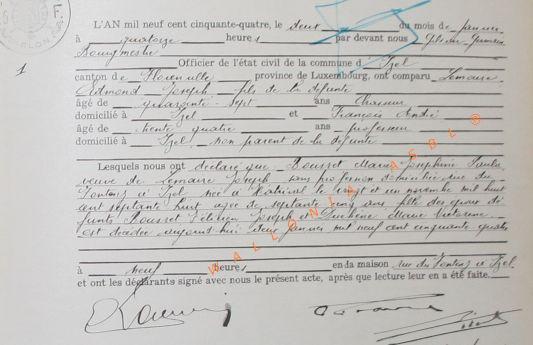 L'AN mil neuf cent cinquante-quatre, le deux du mois de janvier
à quatorze heures par devant nous
Bourgmestre
1
Officier de l'état civil de la commune d Izel
canton de Florenville province de Luxembourg, ont comparu Lemaire
Edmond Joseph fils de la défunte
âgé de quarante-sept ans
domicilié à Izel et François André
âgé de trente quatre ans professeur
domicilié à Izel, non parent de la défunte
Lesquels nous ont déclaré que Rousset Marie Joséphine
veuve de Lemaire Joseph sans profession domiciliée rue du
à Izel née à le vingt et un novembre mil huit
cent septante huit agée de septante cinq ans fille des époux dé-
funts Rousset Joseph et Duchêne Marie Victorine
est décédée aujourd'hui deux janvier mil neuf cent cinquante quatre
à neuf heures en da maison rue du à Izel
et ont les déclarants signé avec nous le présent acte, après que lecture leur en a été faite.
WALLONIA ASBL ©